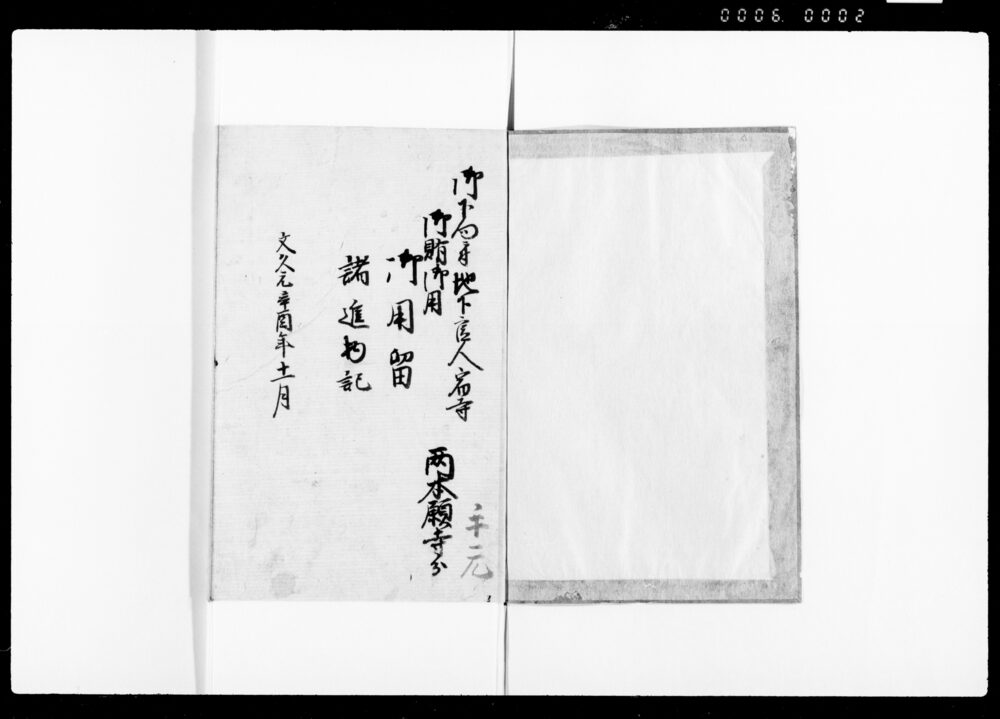 0006 0002
御下向ニ付地下官人宿寺
御賄御用
両本願寺分
御用留
諸進物記
文久元辛酉年十一月